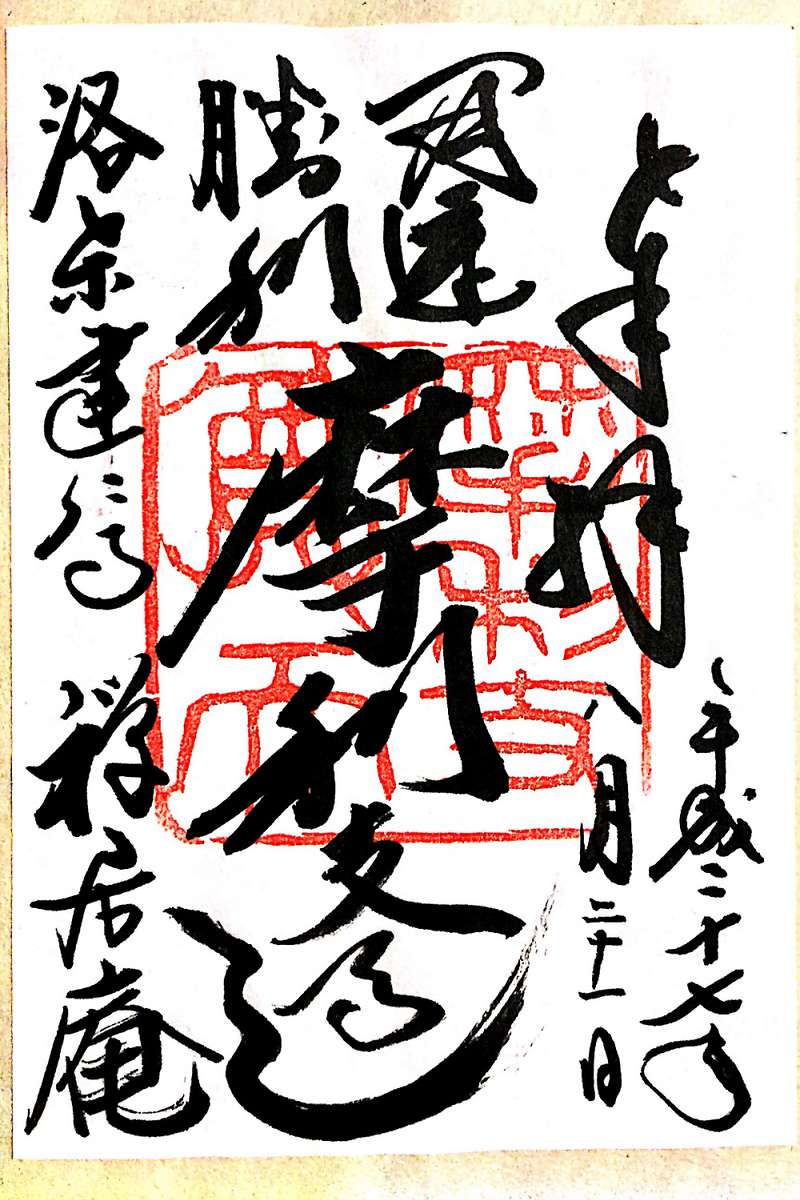 奉拝
平成二十七年
八月二十一日
開運
勝利
摩利支天
洛東建仁寺 禅居庵